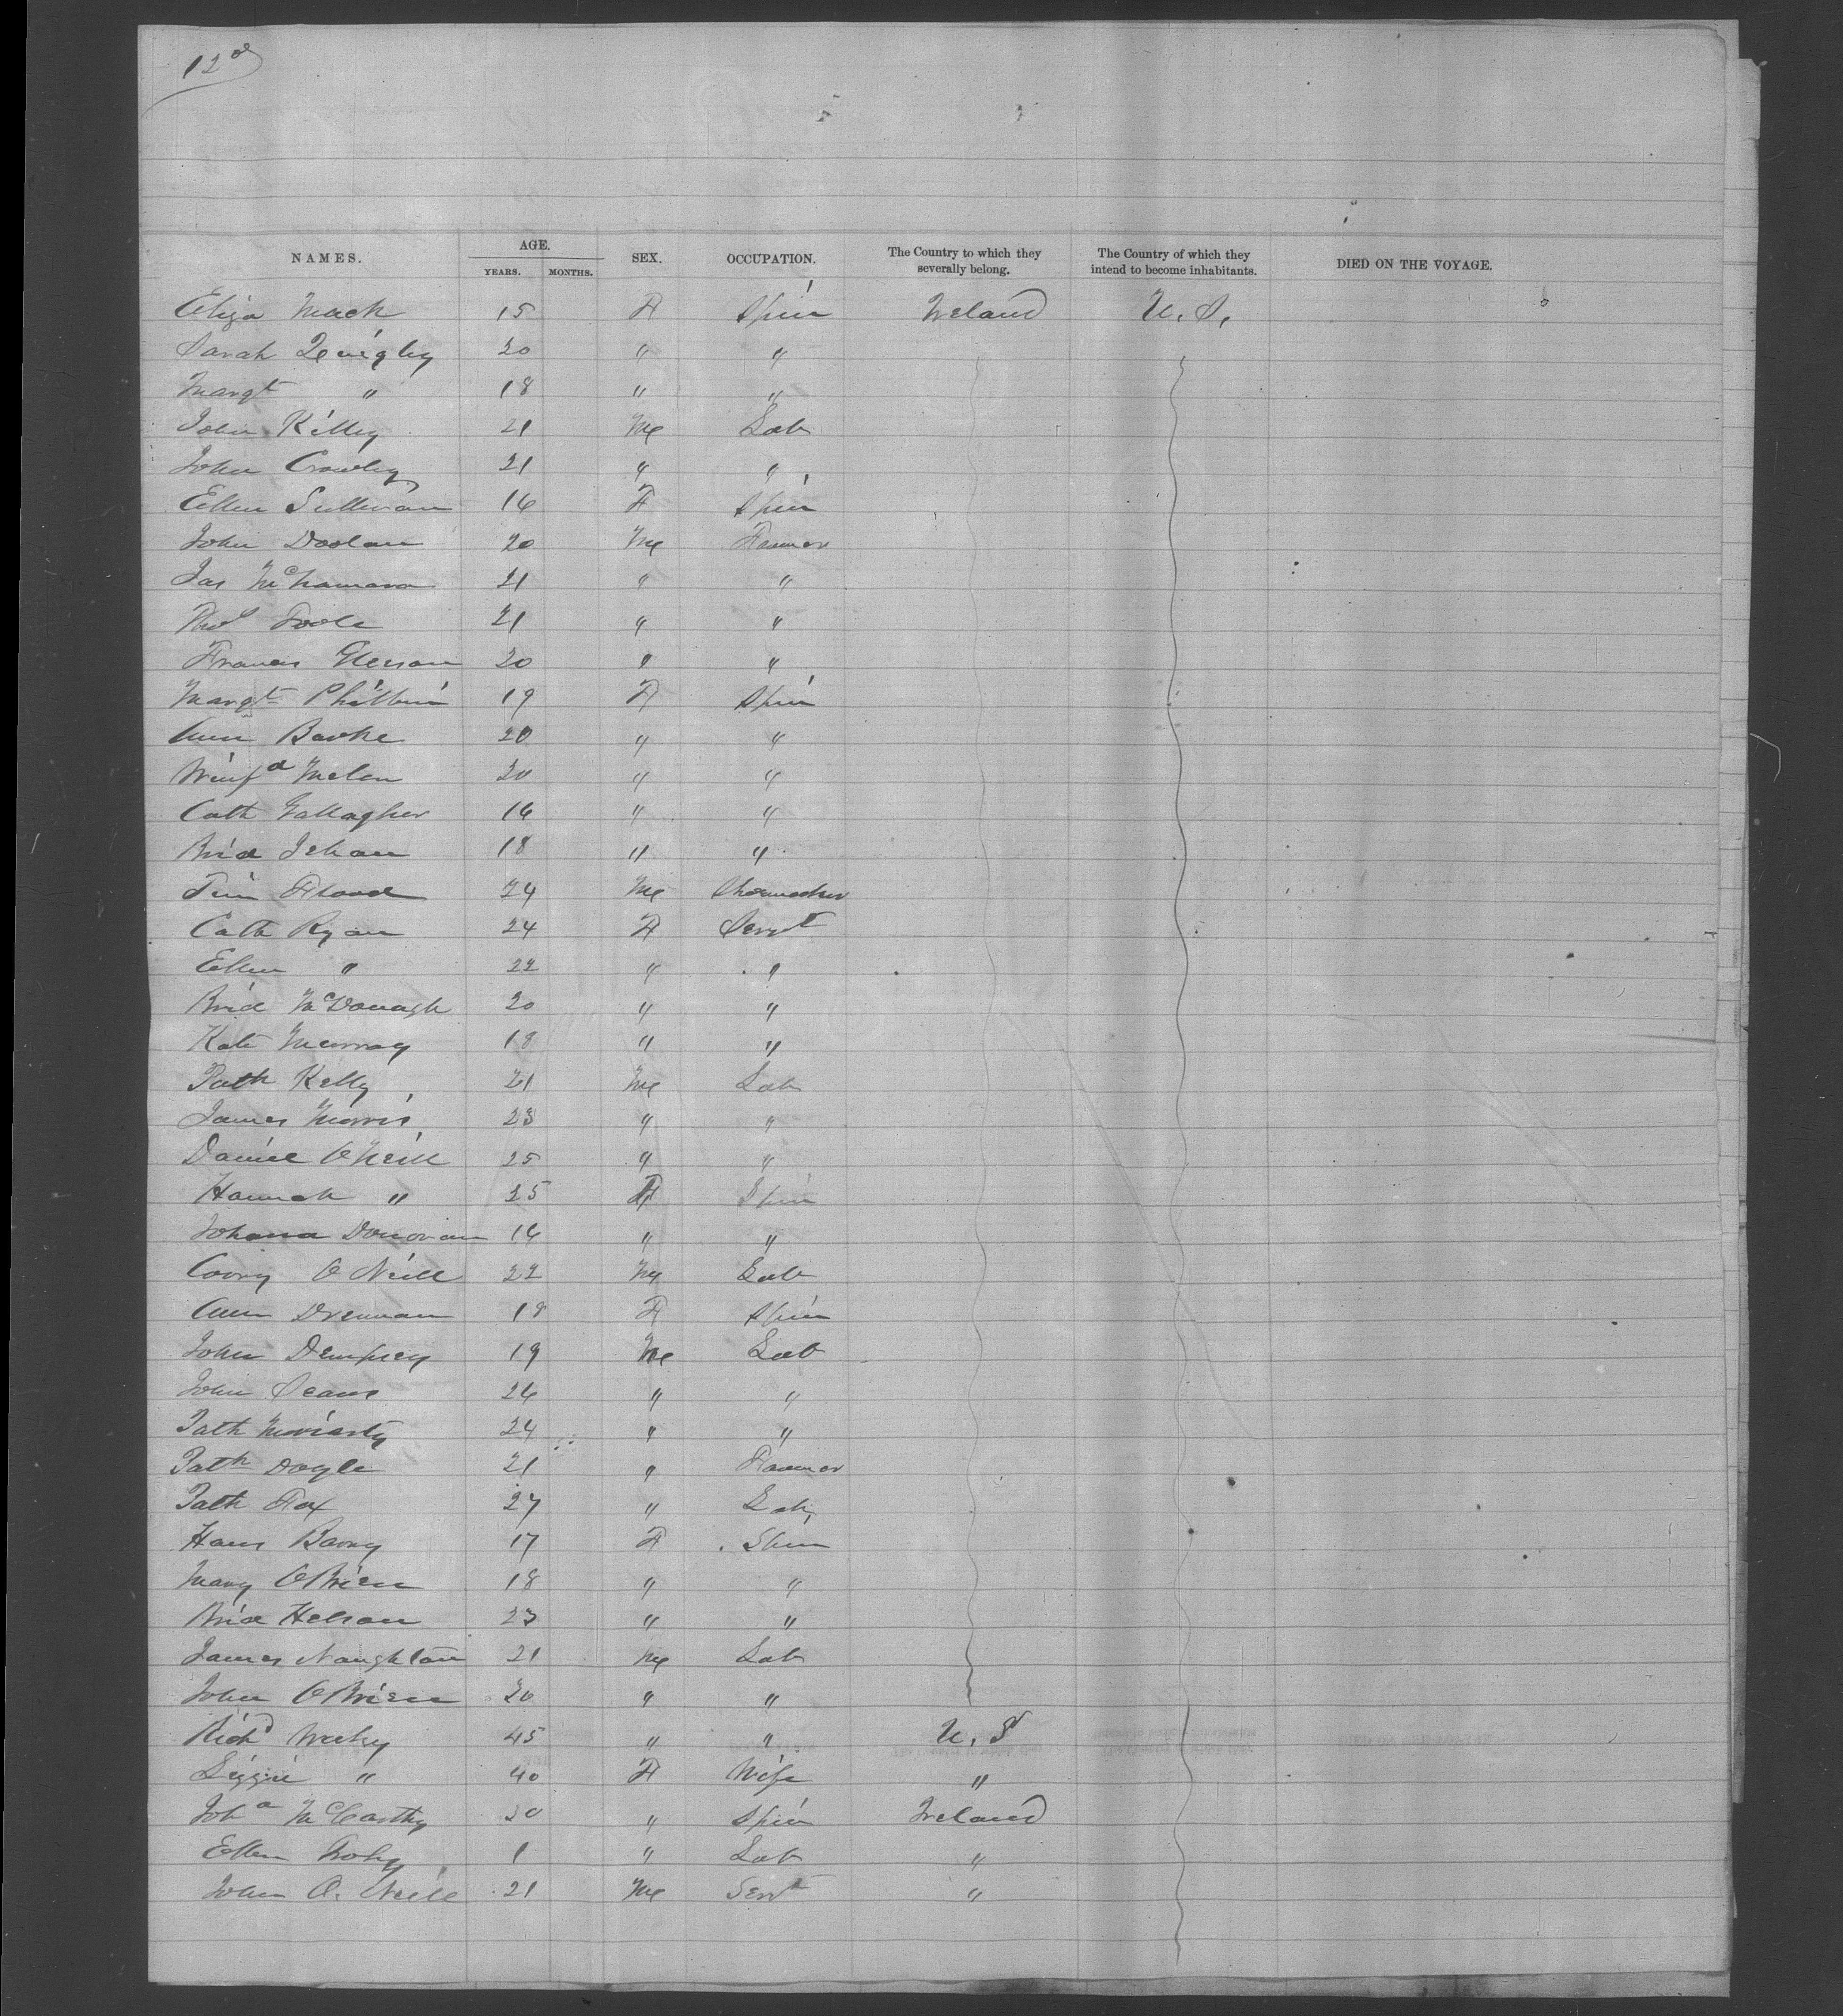 12
NAMES. AGE. YEARS. MONTHS. SEX. OCCUPATION. The Country to which they severally belong. The Country of which they intend to become inhabitants. DIED ON THE VOYAGE.
Eliza Mack 15 F Spin Ireland U. S.
Sarah Quigley 20 " "
Margt " 18 " "
John Kelly 21 M Lab
John Crowley 21 " "
Ellen Sullivan 16 F Spin
John Doolan 20 M Farmer
Jas McNamara 21 " "
Thos Toole 21 " "
Francis Gleeson 20 " "
Margt Philbin 19 F Spin
Ann Barke 20 " "
Winifd 20 " "
Cath Gallagher 16 " "
Brid 18 " "
Tim Flood 24 M Shoemaker
Cath Ryan 24 F Servt
Ellen " 22 " "
Brid McDonagh 20 " "
Kate Murray 18 " "
Patk Kelly 21 M Lab
James Morris 23 " "
Daniel O'Neill 25 " "
Hannah " 25 F Spin
Johana Donovan 16 " "
O'Neill 22 M Lab
Ann Drennan 18 F Spin
John Dempsey 19 M Lab
John 26 " "
Patk Moriarty 24 " "
Patk Doyle 21 " Farmer
Patk Fox 27 " Lab
Barry 17 F Spin
Mary O'Brien 18 " "
Brid 23 " "
James Naughton 21 M Lab
John O'Brien 20 " "
Richd 45 " " U. S
Lizzie " 40 F Wife "
Joha McCarthy 20 " Spin Ireland
Ellen 1 " Lab "
John O. Neill 21 M Servt "